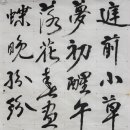 庭前小草
夢初醒午
落花春盡
蝶晚紛紛